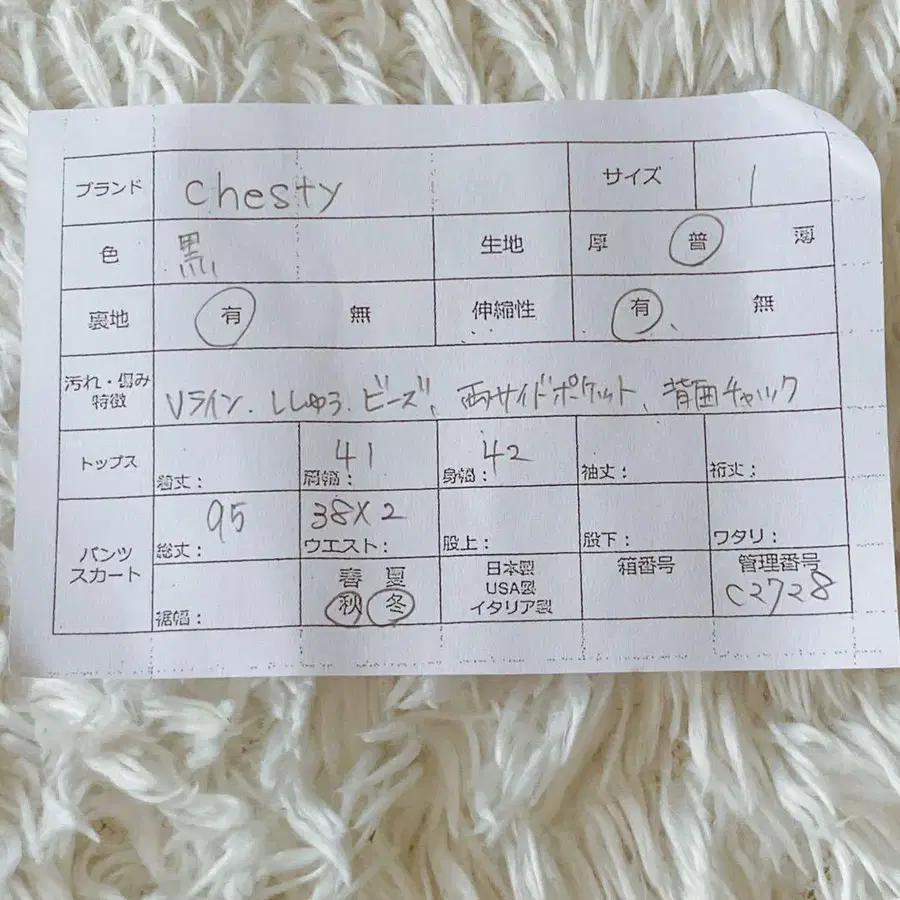 ブランド chesty サイズ 1
色 黒 生地 厚 普 薄
裏地 有 無 伸縮性 有 無
汚れ・傷み
特徴
Vライン、ししゅう、ビーズ、両サイドポケット、背面チャック
トップス 着丈: 肩幅: 41 身幅: 42 袖丈: 裄丈:
パンツ
スカート
総丈: 95 ウエスト: 38×2 股上: 股下: ワタリ:
裾幅:
春 夏
秋 冬
日本製
USA製
イタリア製
箱番号
管理番号
C2728